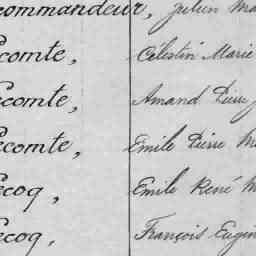 commandeur, Julien Ma
comte, Célestin Marie
comte, Amand Pierre
comte, Emile Pierre M
ecoq, Emile René M
ecoq, François Eugèn